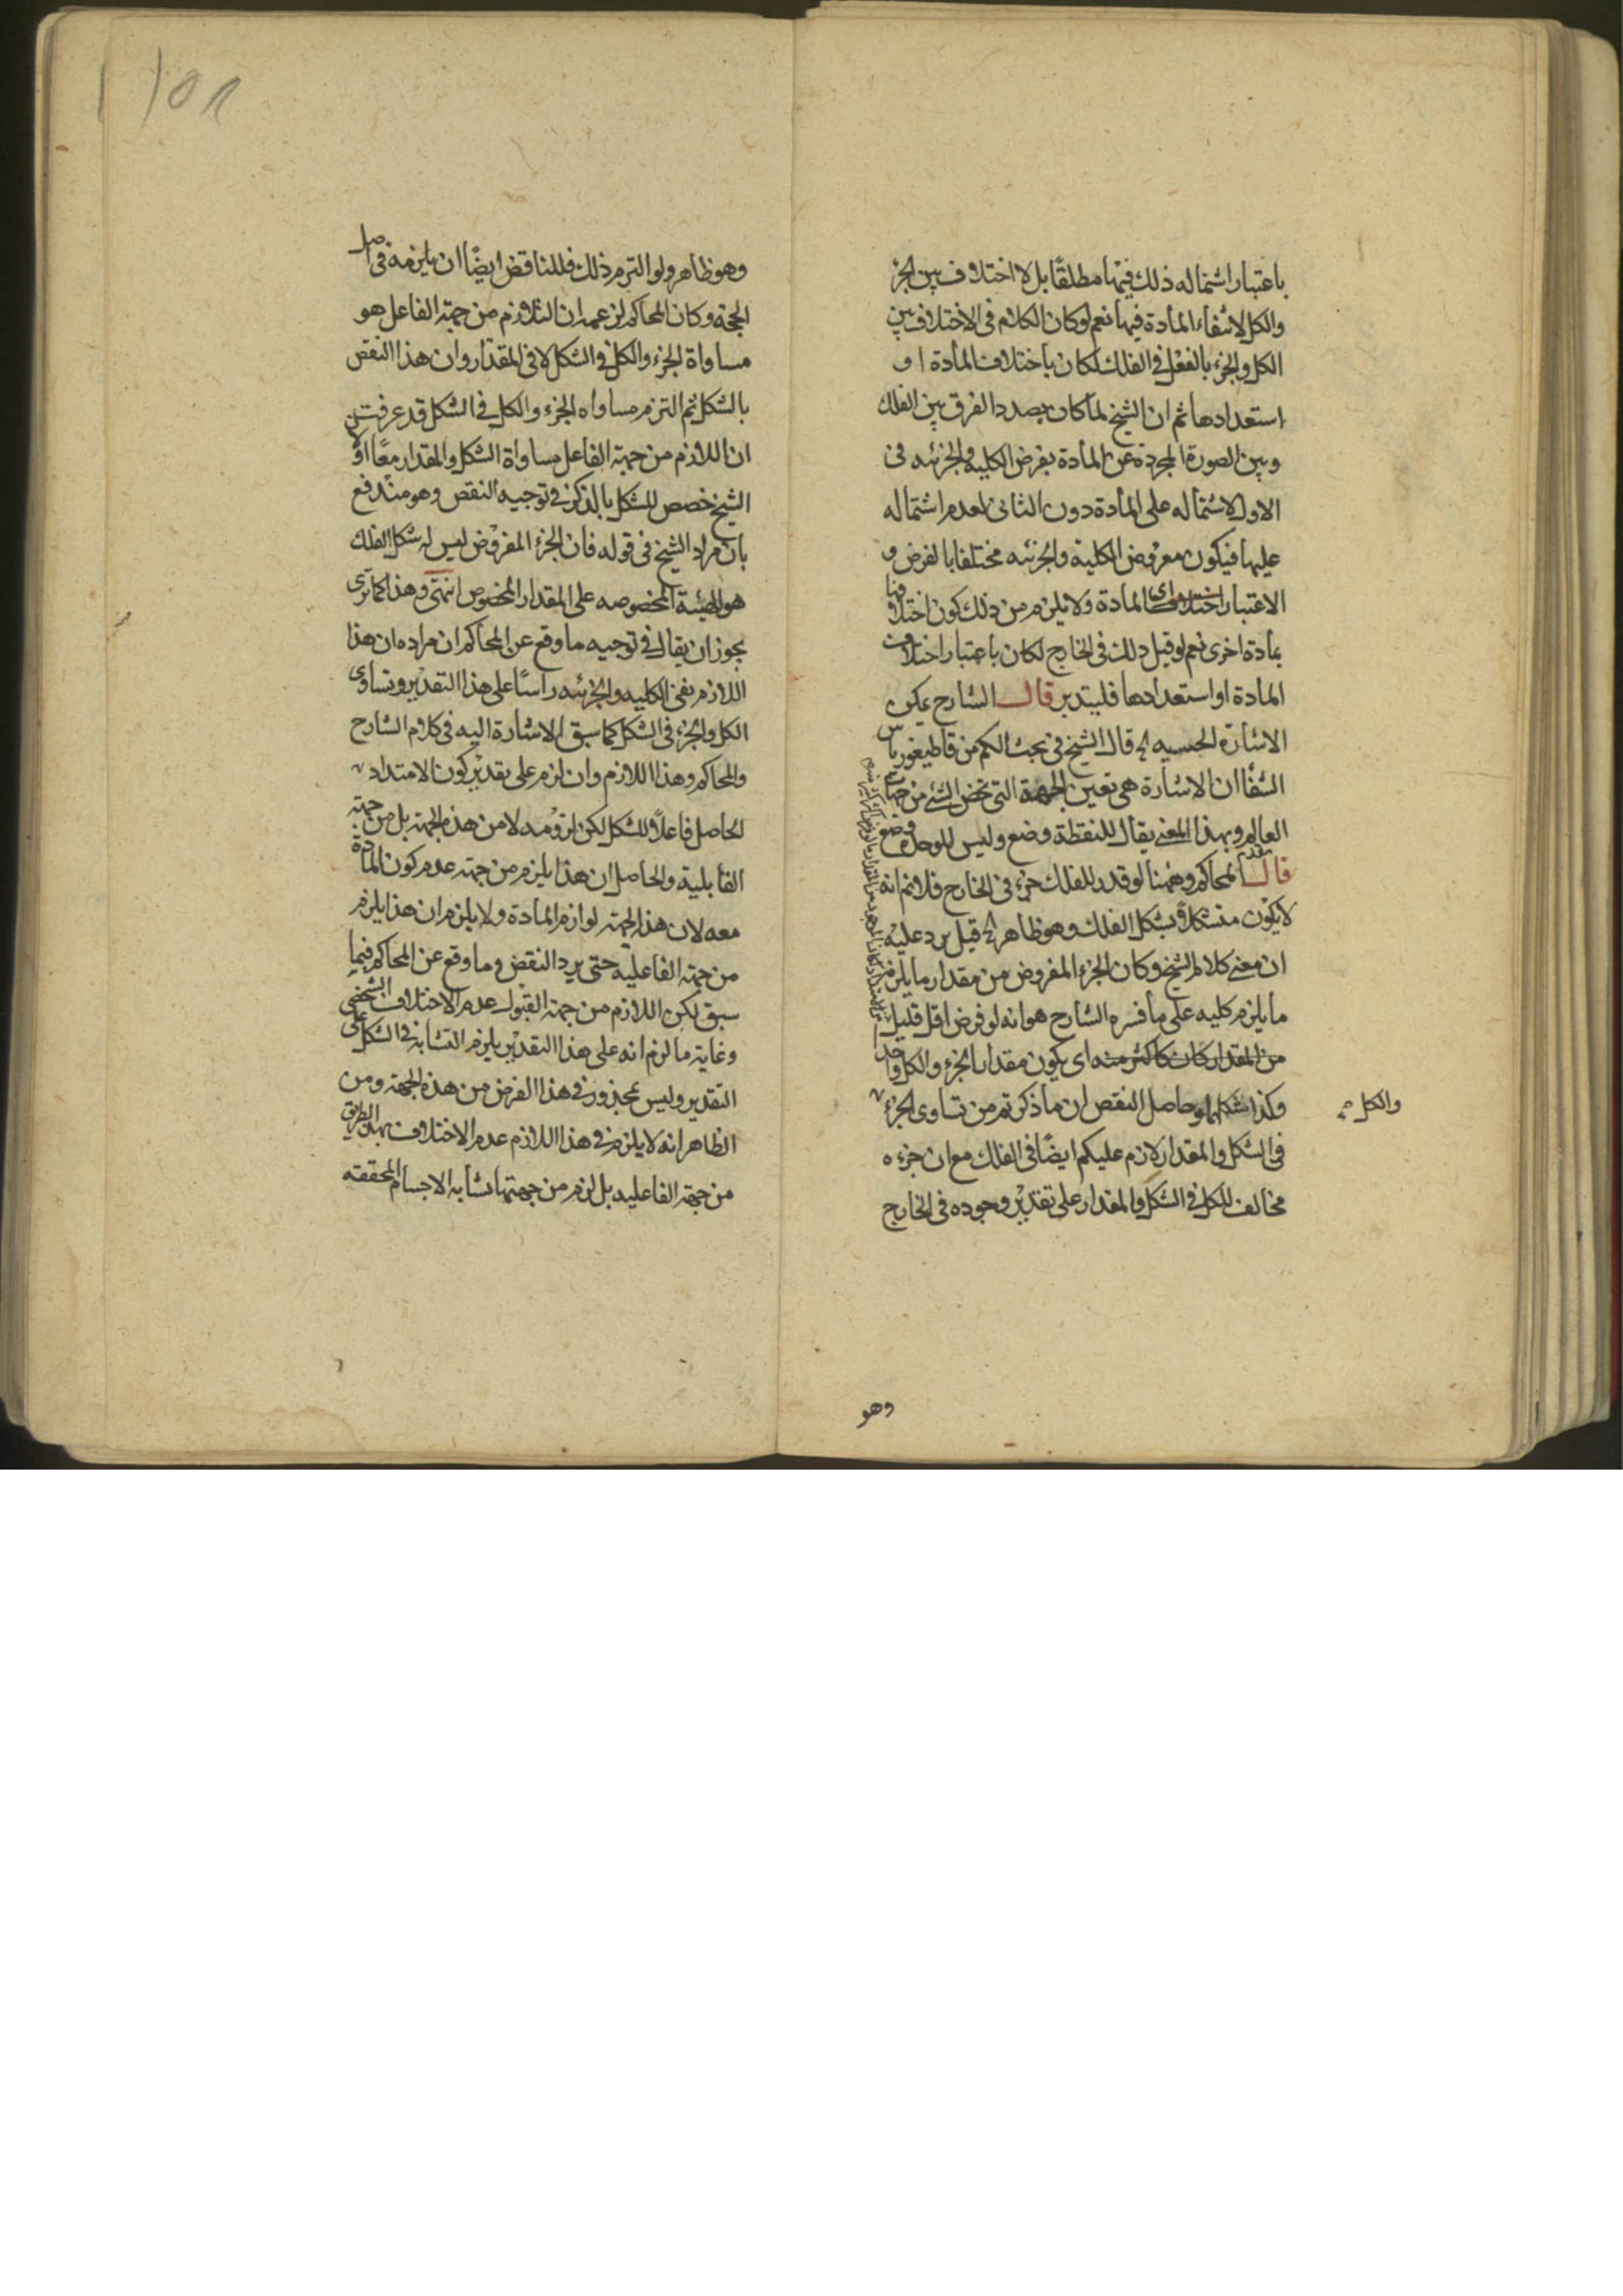 باعتبار اشتماله ذلك فيها مطلقًا بل لا اختلاف بين الجزء
والكل لانتفاء المادة فيها نعم لو كان الكلام فى الاختلاف بين
الكل والجزء بالفعل فى الفلك لكان باختلاف المادة او
استعدادها ثم ان الشيخ لما كان بصدد الفرق بين الفلك
وبين الصورة المجردة عن المادة بفرض الكليه والجزئيه فى
الاول لاشتماله على المادة دون الثانى لعدم اشتماله
عليها فيكون معروض الكلية والجزئيه مختلفا بالفرض و
الاعتبار المادة ولا يلزم من ذلك كون اختلافها
بمادة اخرى نعم لو قيل ذلك فى الخارج لكان باعتبار اختلاف
المادة او استعدادها فليتدبر قال الشارح يمكن
الاشارة الحسيه الخ قال الشيخ فى بحث الكم من قاطيغورياس
الشفأ ان الاشارة هى تعين الجهة التى تخص الشئ من جهات
العالم وبهذا المعنى يقال للنقطة وضع وليس للوحدة وضع
قال المحاكم وههنا لو قدر للفلك جزء فى الخارج فلا نم انه
لا يكون متشكلا بشكل الفلك وهو ظاهر الخ قيل يرد عليه
ان معنى كلام الشيخ وكان الجزء المفروض من مقدار ما يلزمه
ما يلزم كليه على ما فسره الشارح هو انه لو فرض اقل قليل
من المقدار كان كاكثر منه اى يكون مقدار الجزء والكل واحد
وكذا شكلهما وحاصل النقض ان ما ذكرتم من تساوى الجزء
والكل
فى الشكل والمقدار لازم عليكم ايضًا فى الفلك مع ان جزءه
مخالف للكل فى الشكل والمقدار على تقدير وجوده فى الخارج
وهو
وهو ظاهر ولو التزم ذلك فللناقض ايضًا ان يلزمه فى اصل
الحجة وكان المحاكم زعم ان اللازم من جهة الفاعل هو
مساواة الجزء والكل فى الشكل لا فى المقدار وان هذا النقض
بالشكل ثم التزم مساواه الجزء والكل فى الشكل قد عرفت
ان اللازم من جهة الفاعل مساواة الشكل والمقدار معًا
الشيخ خصص الشكل بالذكر فى توجيه النقض وهو مندفع
بان مراد الشيخ فى قوله فان الجزء المفروض ليس له شكل الفلك
هو الهيئة المخصوصه على المقدار المخصوص انتهى وهذا كما ترى
يجوز ان يقال فى توجيه ما وقع عن المحاكم ان مراده ان هذا
اللازم نفى الكليه والجزئيه راسًا على هذا التقدير وتساوى
الكل والجزء فى الشكل كما سبق الاشارة اليه فى كلام الشارح
والمحاكم وهذا اللازم وان لزم على تقدير كون الامتداد
الحاصل فاعلًا للشكل لكن لزومه لا من هذه الجهة بل من جهة
القابلية والحاصل ان هذا يلزم من جهة عدم كون المادة
معه لان هذا الجهة لوازم المادة ولا يلزم ان هذا يلزم
من جهة الفاعليه حتى يرد النقض وما وقع عن المحاكم فيما
سبق لكن اللازم من جهة القبول عدم الاختلاف الشخصى
وغاية ما لزم انه على هذا التقدير يلزم التشابه فى الشكل على
التقدير وليس بمحذور فى هذا الفرض من هذه الجهة ومن
الظاهر انه لا يلزم فى هذا اللازم عدم الاختلاف بهذا الطريق
من جهة الفاعليه بل لزم من جهتها تشابه الاجسام المحققة